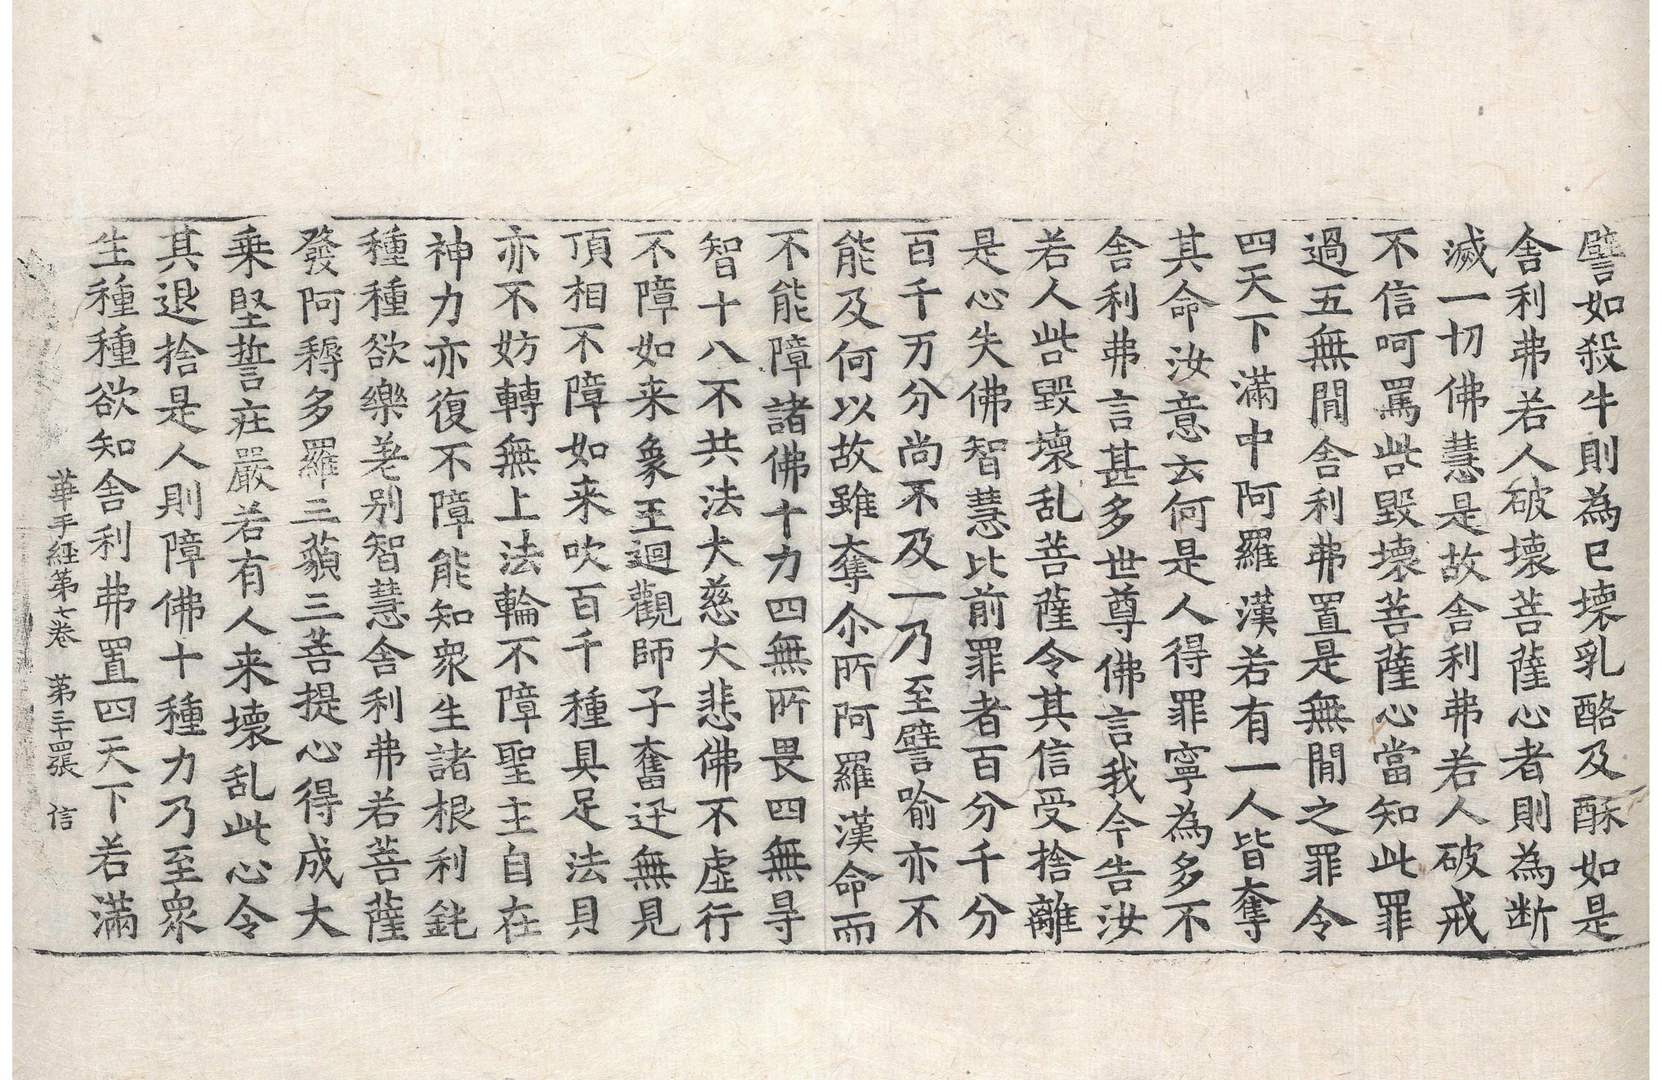 譬如殺牛則為已壞乳酪及酥如是
舍利弗若人破壞菩薩心者則為断
滅一切佛慧是故舍利弗若人破戒
不信呵罵呰毀壞菩薩心當知此罪
過五無閒舍利弗置是無閒之罪令
四天下滿中阿羅漢若有一人皆奪
其命汝意云何是人得罪寧為多不
舍利弗言甚多世尊佛言我今告汝
若人呰毀壞乱菩薩令其信受捨離
是心失佛智慧比前罪者百分千分
百千万分尚不及一乃至譬喻亦不
能及何以故雖奪尒所阿羅漢命而
不能障諸佛十力四無所畏四無㝵
智十八不共法大慈大悲佛不虛行
不障如来象王迴觀師子奮迅無見
頂相不障如来吹百千種具足法貝
亦不妨轉無上法輪不障聖主自在
神力亦復不障能知衆生諸根利鈍
種種欲樂差别智慧舍利弗若菩薩
發阿耨多羅三藐三菩提心得成大
乗堅誓莊嚴若有人来壞乱此心令
其退捨是人則障佛十種力乃至衆
生種種欲知舍利弗置四天下若滿
華手経第七卷 第三十四張 信